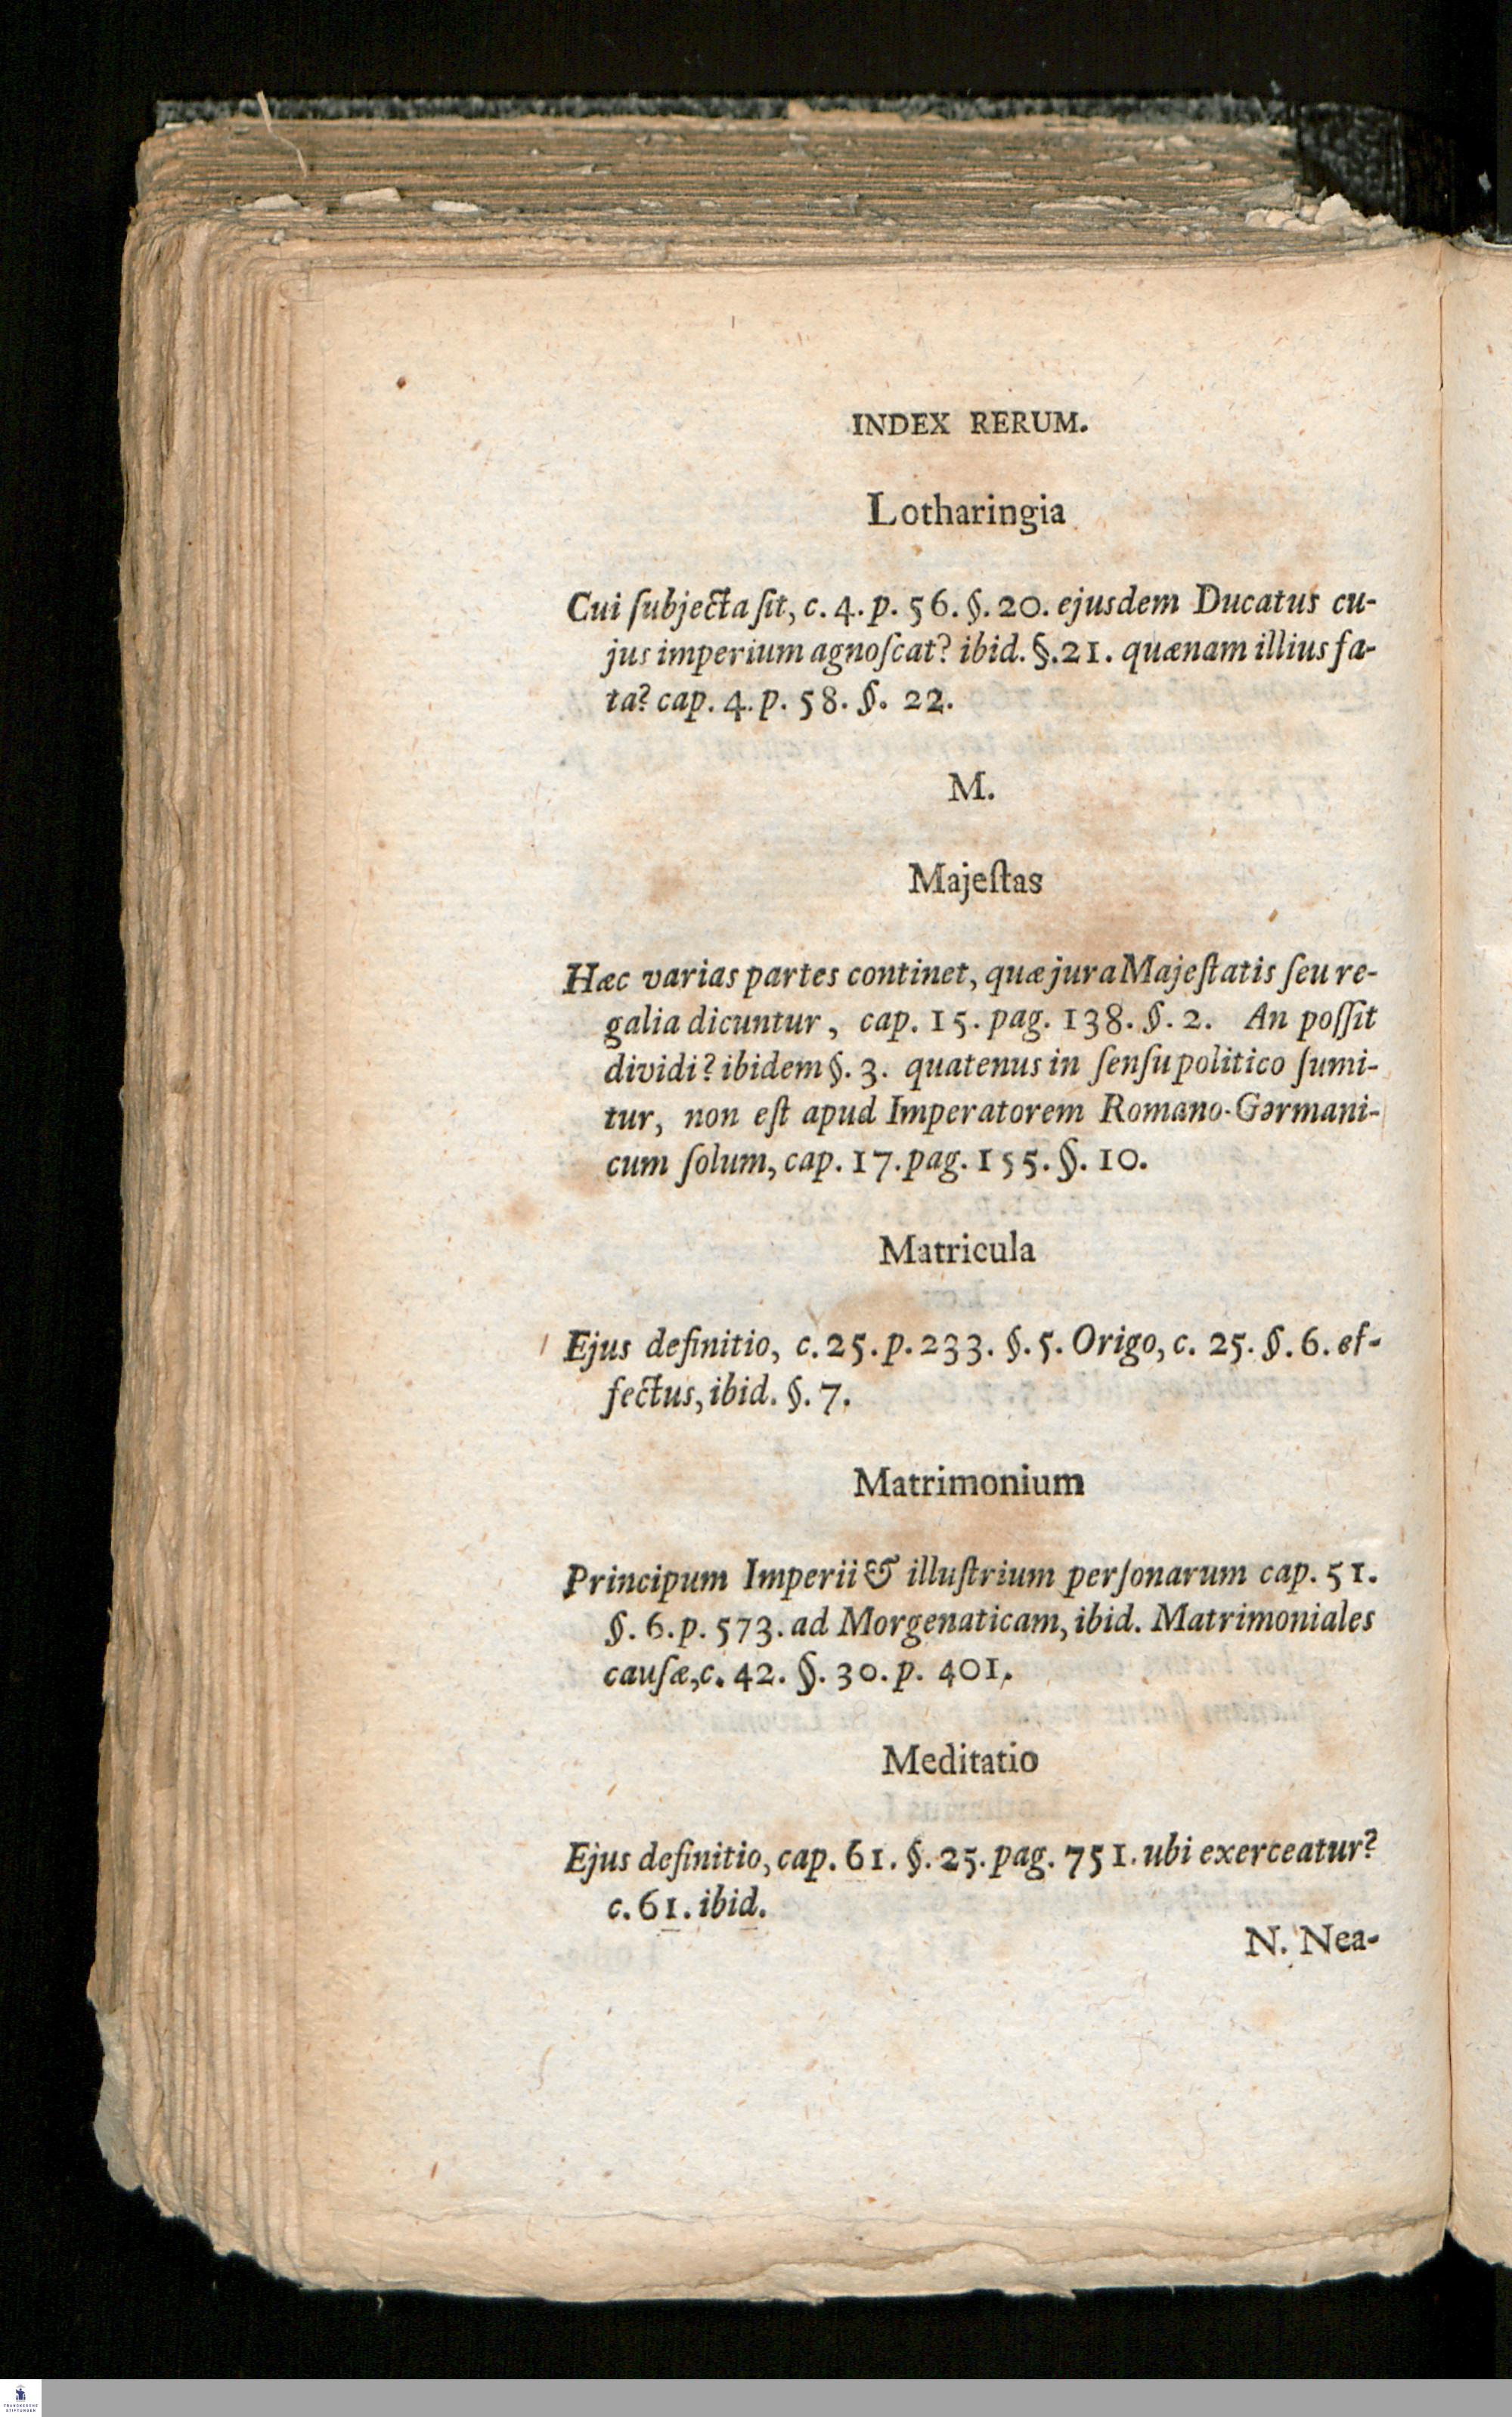 INDEX RERUM.
Lotharingia
Cui ſubjecta ſit, c. 4. p. 56. §. 20. ejusdem Ducatus cu-
jus imperium agnoſcat? ibid. §. 21. quænam illius fa-
ta? cap. 4. p. 58. §. 22.
M.
Majeſtas
Hæc varias partes continet, quæ jura Majeſtatis ſeu re-
galia dicuntur, cap. 15. pag. 138. §. 2. An poſſit
dividi? ibidem §. 3. quatenus in ſenſu politico ſumi-
tur, non eſt apud Imperatorem Romano-Germani-
cum ſolum, cap. 17. pag. 155. §. 10.
Matricula
Ejus definitio, c. 25. p. 233. §. 5. Origo, c. 25. §. 6. ef-
fectus, ibid. §. 7.
Matrimonium
Principum Imperii & illuſtrium perſonarum cap. 51.
§. 6. p. 573. ad Morgenaticam, ibid. Matrimoniales
cauſæ, c. 42. §. 30. p. 401.
Meditatio
Ejus definitio, cap. 61. §. 25. pag. 751. ubi exerceatur?
c. 61. ibid.
N. Nea-
FRANCKESCHE
STIFTUNGEN